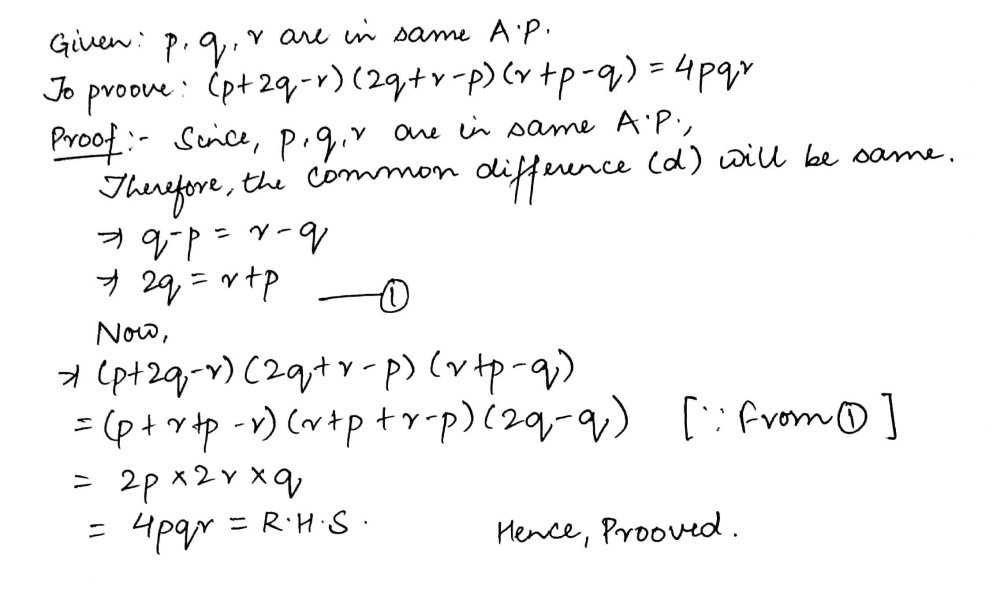 Given: p, q, r are in same A.P.
To proove: (p+2q-r)(2q+r-p)(r+p-q) = 4pqr
Proof :- Since, p, q, r are in same A.P.,
Therefore, the common difference (d) will be same.
⇒ q-p = r-q
⇒ 2q = r+p —— ①
Now,
⇒ (p+2q-r)(2q+r-p)(r+p-q)
= (p+r+p-r)(r+p+r-p)(2q-q) [∵ from ①]
= 2p×2r×q
= 4pqr = R.H.S. Hence, Prooved.